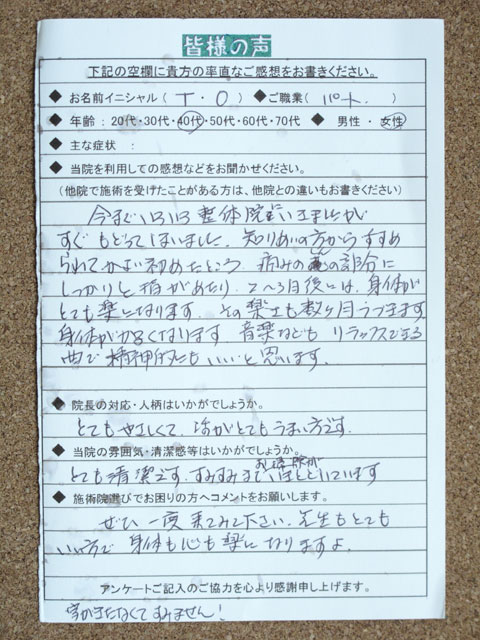 皆様の声
下記の空欄に貴方の率直なご感想をお書きください。
◆ お名前イニシャル ( T ・ O ) ◆ご職業 ( パート. )
◆ 年齢 : 20代・30代・40代・50代・60代・70代 ◆ 男性 ・ 女性
◆ 主な症状 :
◆ 当院を利用しての感想などをお聞かせください。
(他院で施術を受けたことがある方は、他院との違いもお書きください)
今までいろいろ整体院に行きましたが
すぐもどってしまいました。知りあいの方からすすめ
られてかよい初めたところ、痛みのの部分に
しっかりと指があたり、2〜3日後には、身体が
とても楽になります。その楽さも数ヶ月つづきます
身体がかるくなります。音楽なども リラックスできる
曲で精神的にもいいと思います。
◆ 院長の対応・人柄はいかがでしょうか。
とてもやさしくて、治がとてもうまい方です.
◆ 当院の雰囲気・清潔感等はいかがでしょうか。
とても清潔です. すみずみまでお掃除がいきとどいています
◆ 施術院選びでお困りの方へコメントをお願いします。
ぜひ 一度 来てみて下さい. 先生もとても
いい方で 身体も心も楽になりますよ.
アンケートご記入のご協力を心より感謝申し上げます。
字がきたなくてすみません!